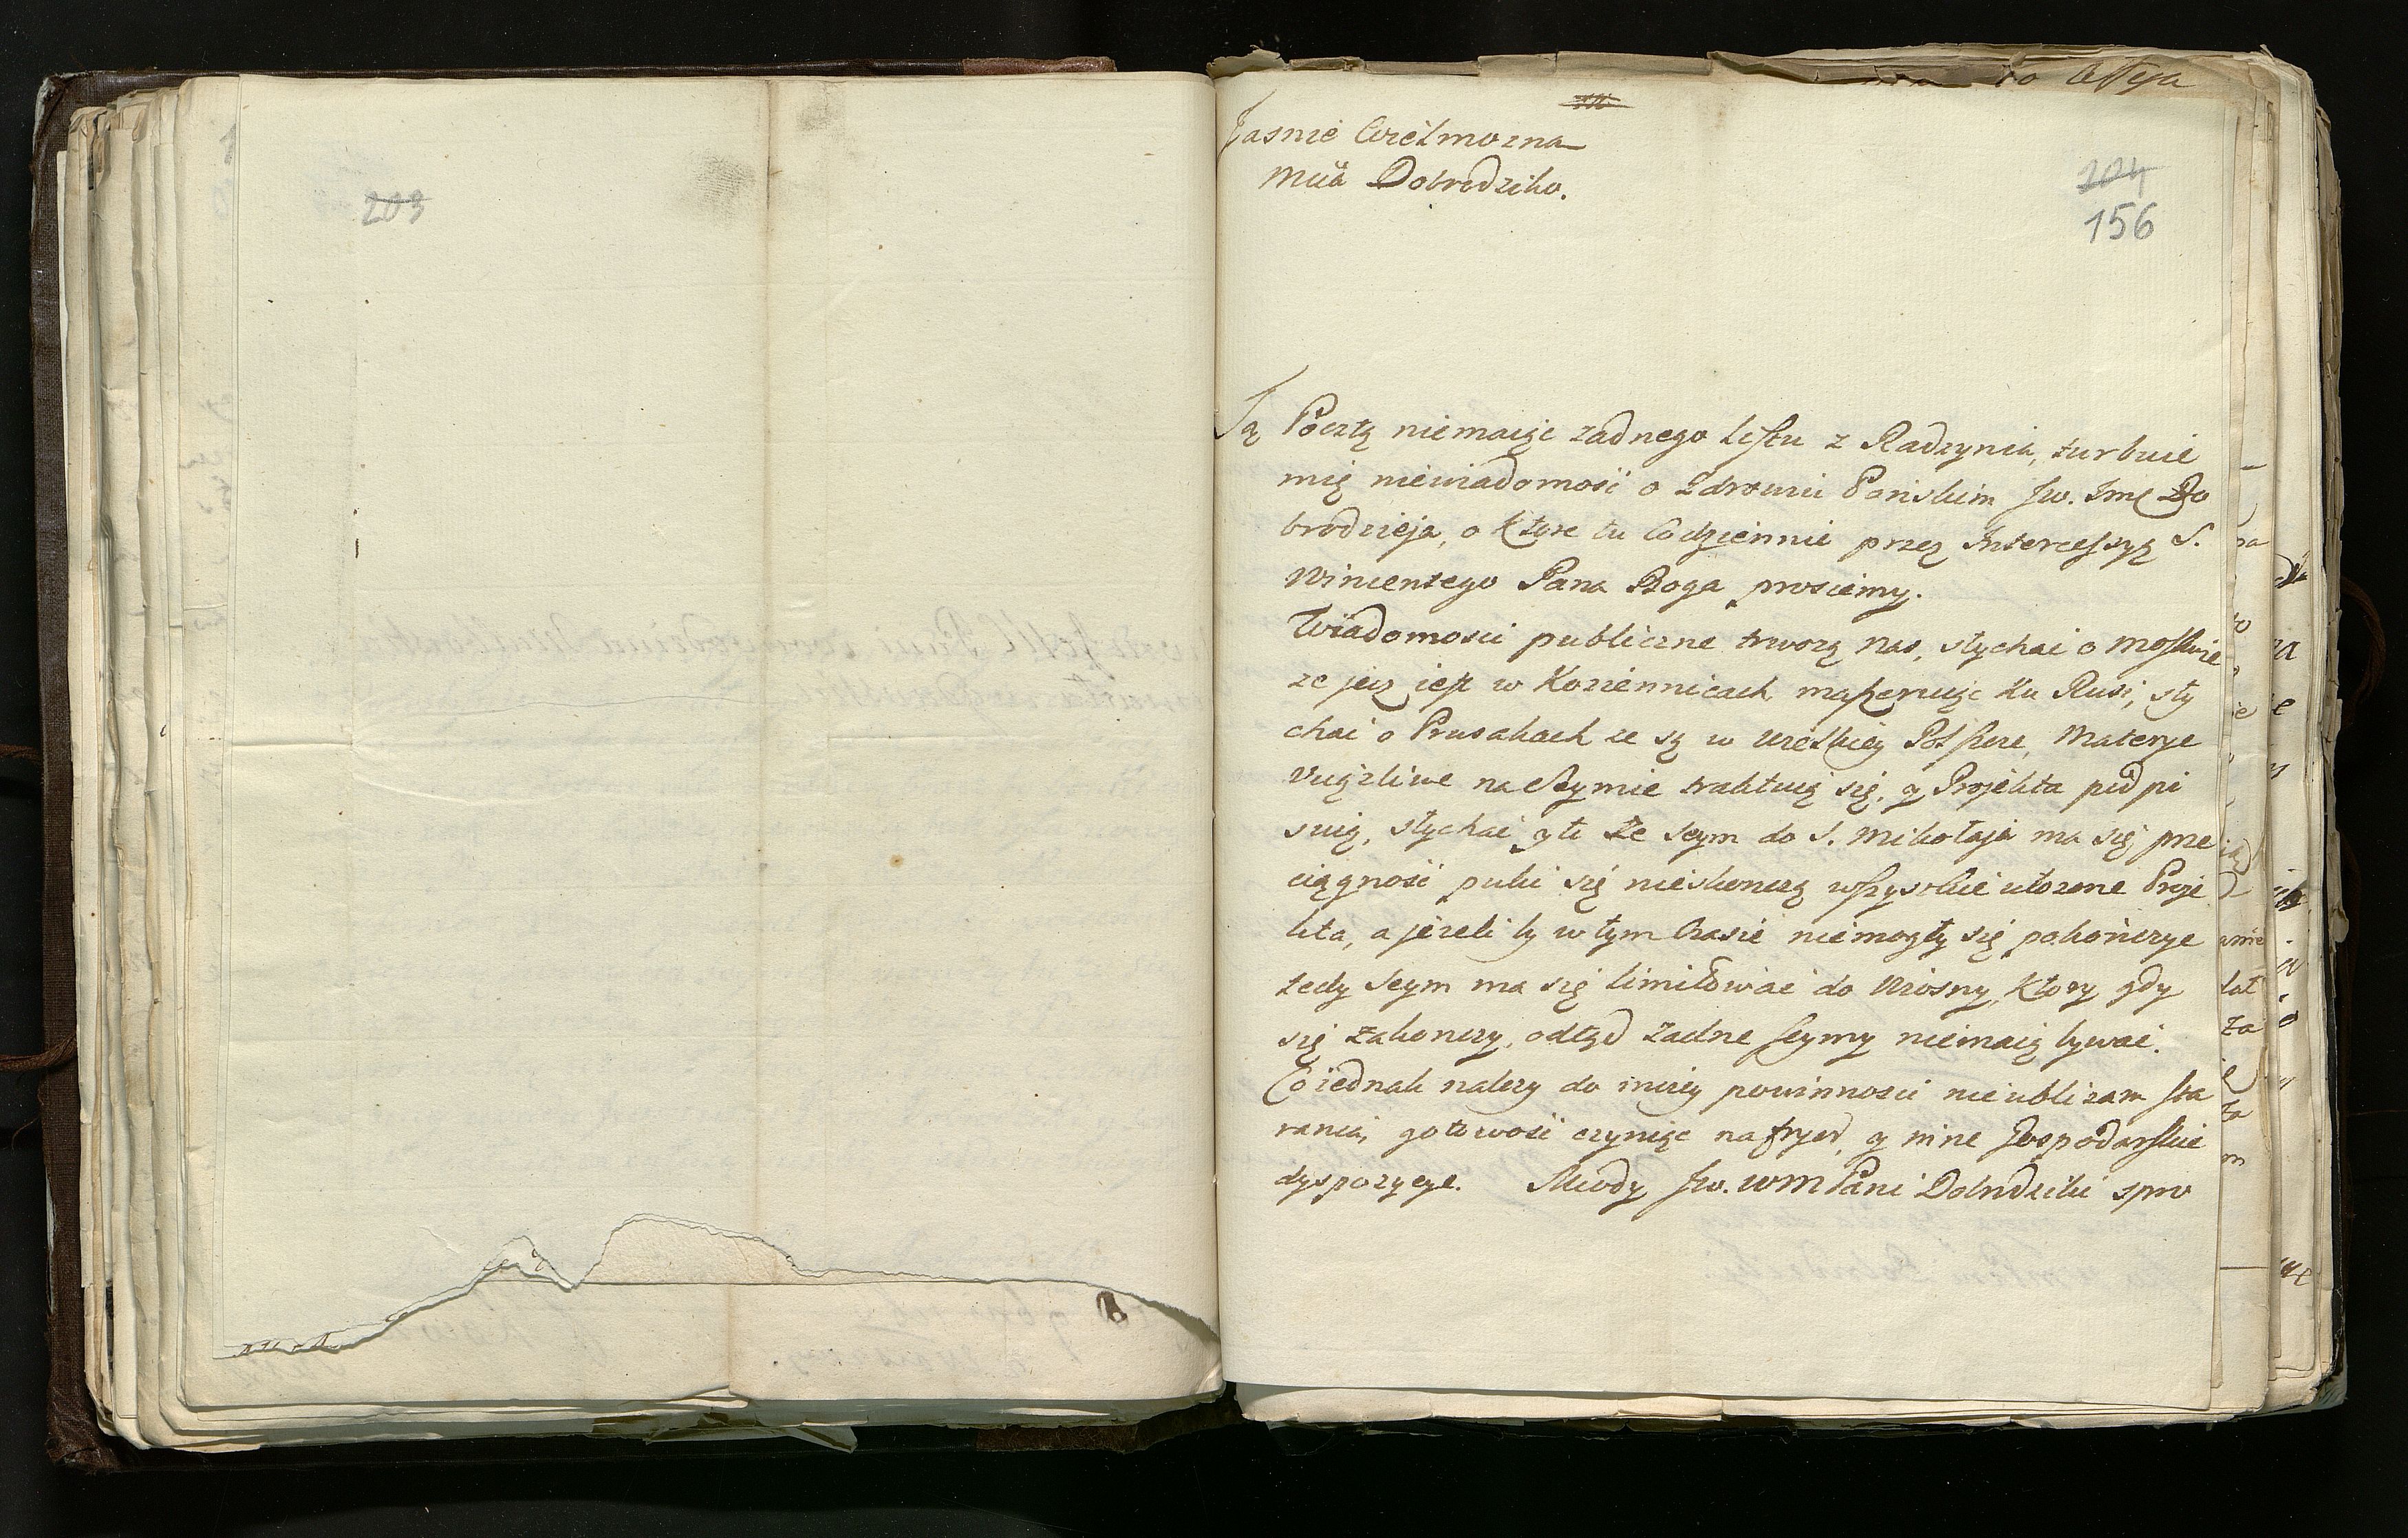 203
204
156
Jasnie Wielmozna
Mcia Dobrodziko.
Tą Pocztą niemaiąc zadnego listu z Radzynia, turbuie
mię niewiadomość o Zdrowiu Pańskim Jw. Jmę Do
brodzieja, o ktore tu Codziennie przez Intercessyą S.
Wincentego Pana Boga prosiemy.
Wiadomosci publiczne trworzą nas, słychać o Moskwie
ze juz iest w Koziennicach maszeruąc ku Rusi, sły
chać o Prusakach ze są w wielkiey Polszcze, Materye
uciązliwe na Seymie traktuią się, y Projekta podpi
suią, słychać y to ze Seym do S. Mikołaja ma się prze
ciągność poki się nieskonczą wszystkie ułozone Proje
kta, a jezeli by w tym Czasie niemogły się pokończyc
tedy Seym ma się limitować do Wiosny, ktory gdy
się zakonczy, odtąd zadne Seymy niemaią bywać.
Co iednak nalezy do moiey powinnosci nieublizam sta
rania, gotowość czyniąc na fryor, y inne Gospodarskie
dyspozycye. Miody Jw. WM Pani Dobrodziki spro